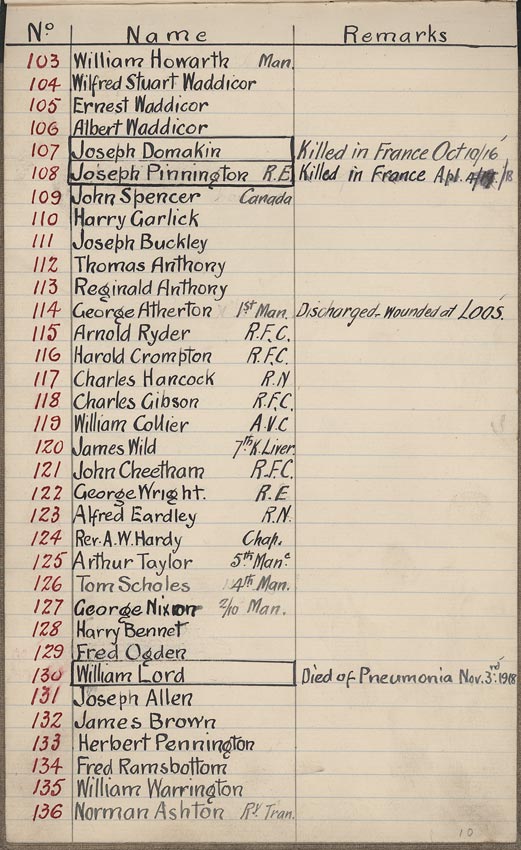 Nº Name Remarks
103 William Howarth Man.
104 Wilfred Stuart Waddicor
105 Ernest Waddicor
106 Albert Waddicor
107 Joseph Domakin Killed in France Oct 10/16
108 Joseph Pinnington R.E. Killed in France Apl. 4/18
109 John Spencer Canada
110 Harry Garlick
111 Joseph Buckley
112 Thomas Anthony
113 Reginald Anthony
114 George Atherton 1st Man. Discharged - wounded at LOOS.
115 Arnold Ryder R.F.C.
116 Harold Crompton R.F.C.
117 Charles Hancock R.N
118 Charles Gibson R.F.C.
119 William Collier A.V.C
120 James Wild 7th K. Liver.
121 John Cheetham R.F.C.
122 George Wright. R.E
123 Alfred Eardley R.N.
124 Rev. A.W. Hardy Chap.
125 Arthur Taylor 5th Manc
126 Tom Scholes 4th Man.
127 George Nixon 2/10 Man.
128 Harry Bennet
129 Fred Ogden
130 William Lord Died of Pneumonia Nov. 3rd. 1918
131 Joseph Allen
132 James Brown
133 Herbert Pennington
134 Fred Ramsbottom
135 William Warrington
136 Norman Ashton Ry Tran.
10